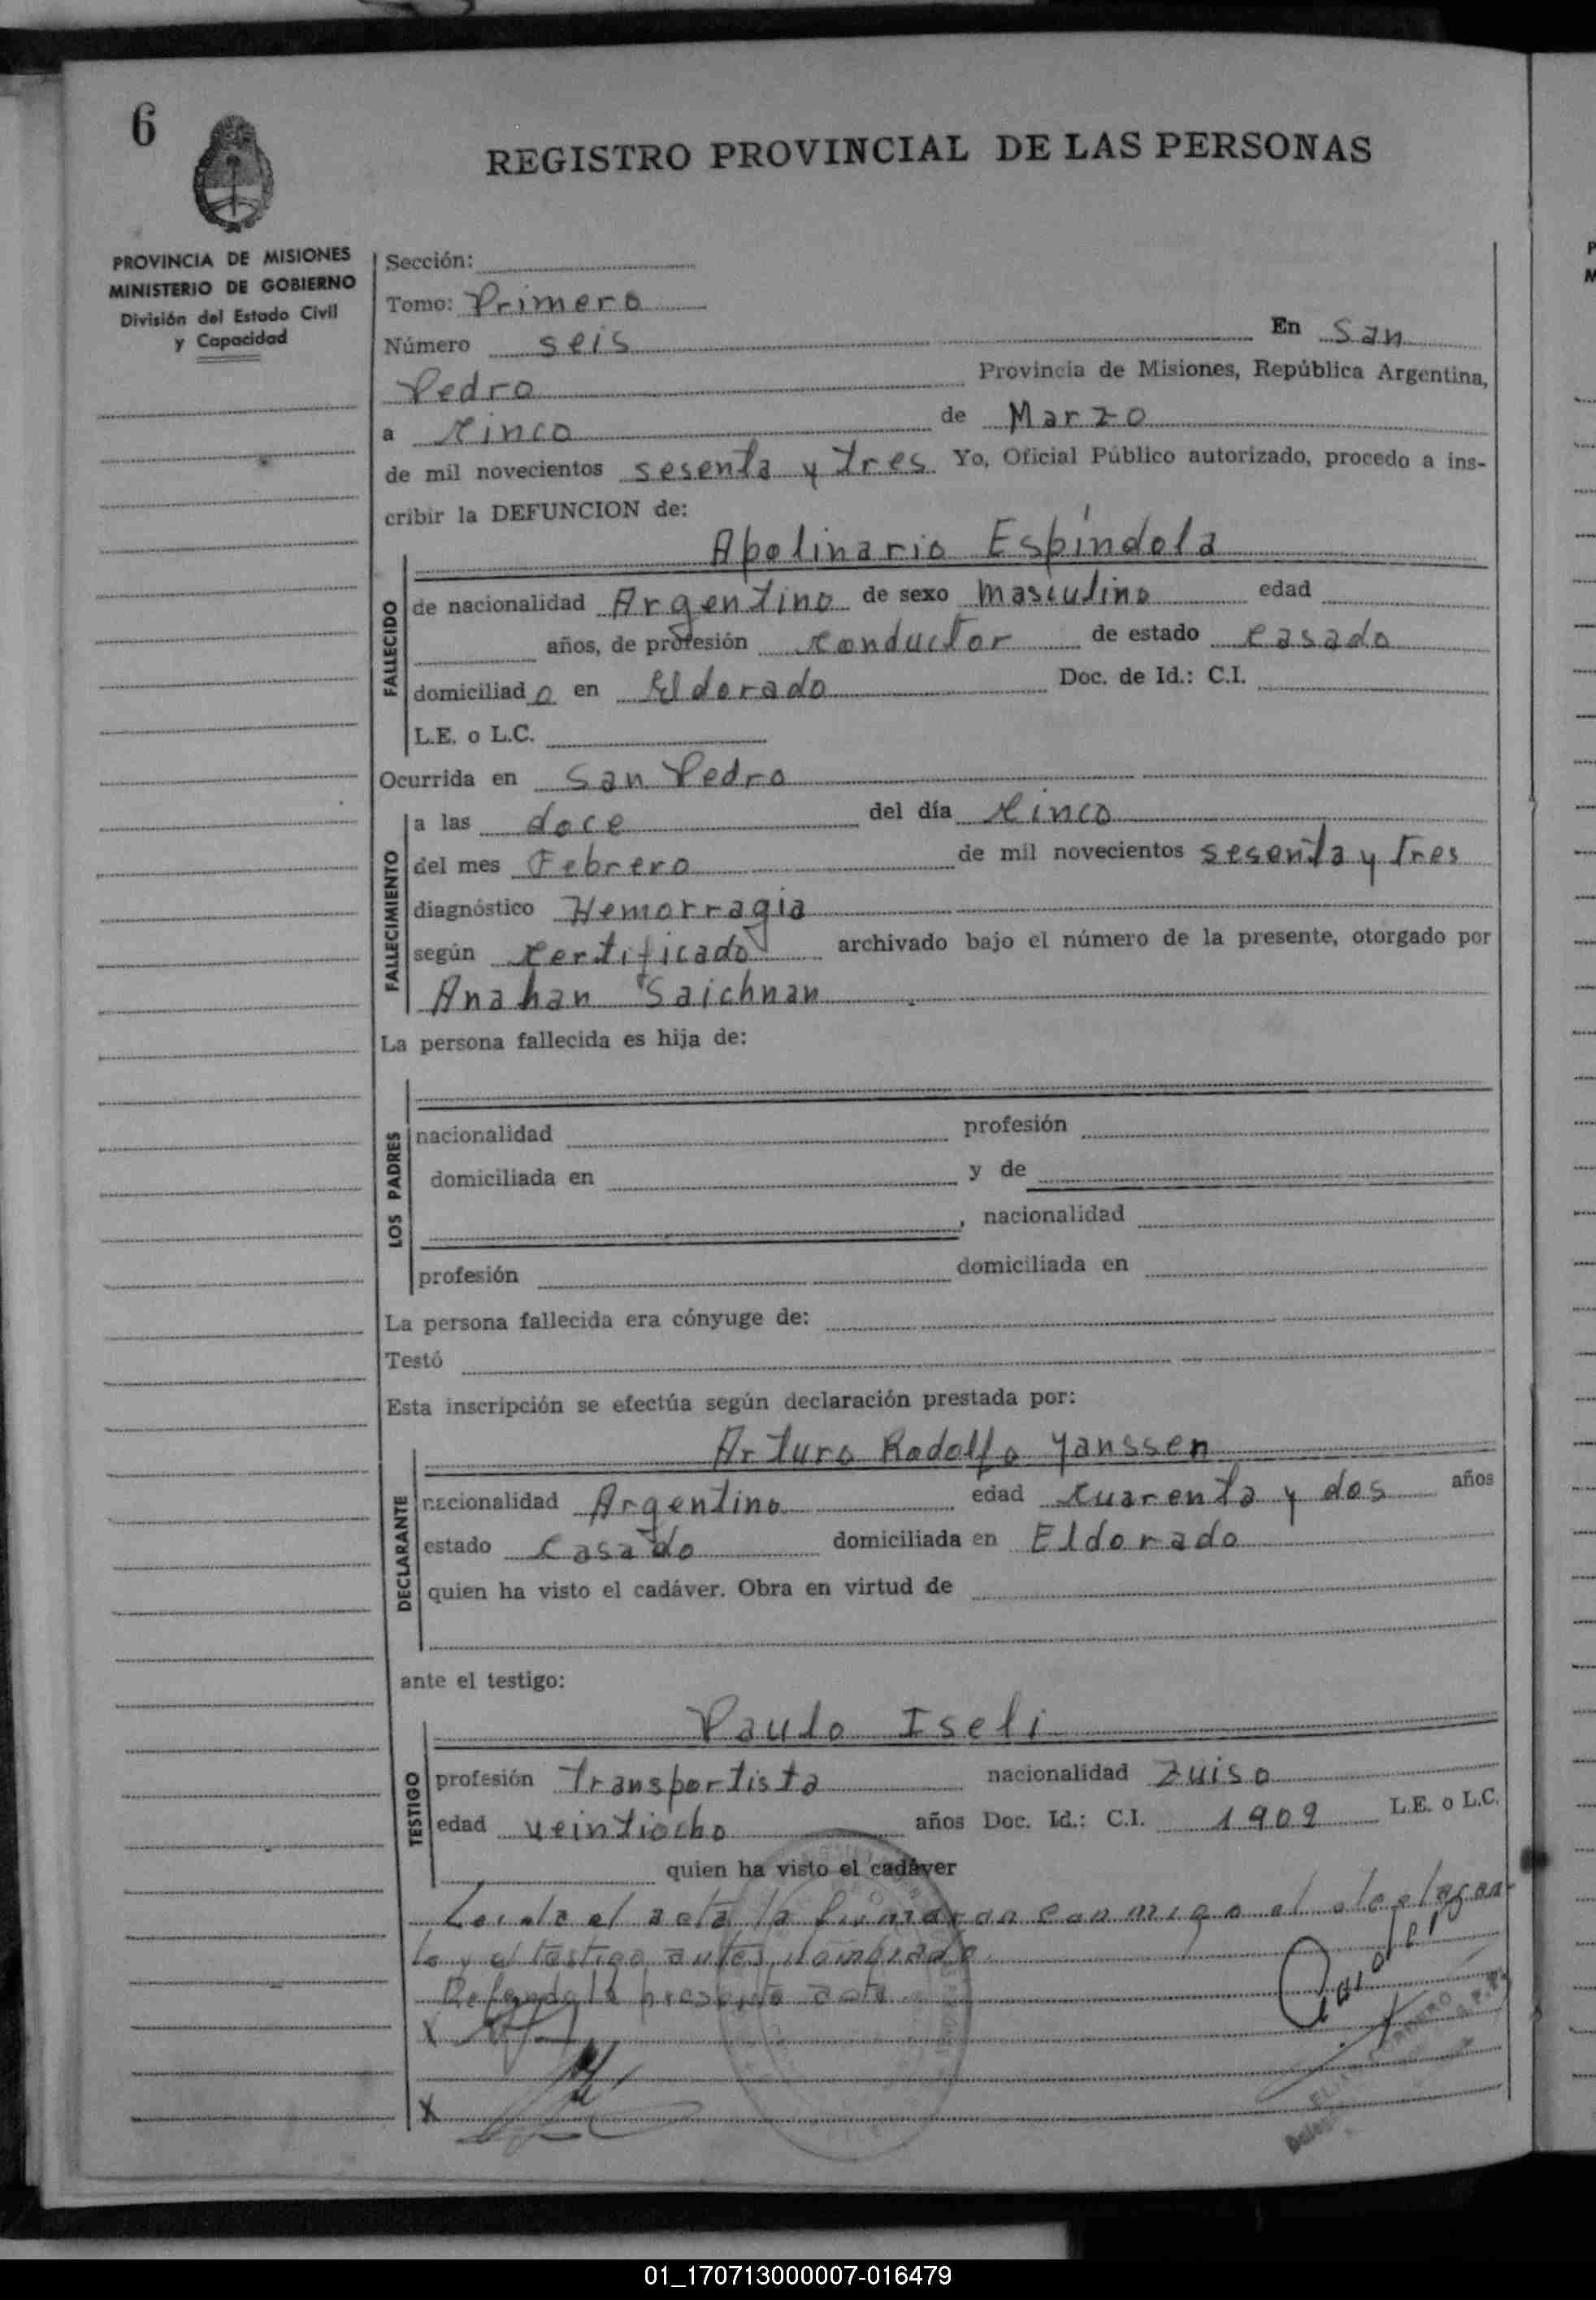 6
REGISTRO PROVINCIAL DE LAS PERSONAS
PROVINCIA DE MISIONES
MINISTERIO DE GOBIERNO
División del Estado Civil
y Capacidad
Sección:
Tomo: Primero
Número seis En San
Pedro Provincia de Misiones, República Argentina,
a cinco de Marzo
de mil novecientos sesenta y tres Yo, Oficial Público autorizado, procedo a ins-
cribir la DEFUNCION de:
FALLECIDO
Apolinario Espíndola
de nacionalidad Argentino de sexo masculino edad
años, de profesión conductor de estado casado
domiciliado en Eldorado Doc. de Id.: C.I.
L.E. o L.C.
Ocurrida en San Pedro
FALLECIMIENTO
a las doce del día cinco
del mes Febrero de mil novecientos sesenta y tres
diagnóstico Hemorragia
según certificado archivado bajo el número de la presente, otorgado por
Anahan Saichnan
La persona fallecida es hija de:
LOS PADRES
nacionalidad profesión
domiciliada en y de
, nacionalidad
profesión domiciliada en
La persona fallecida era cónyuge de:
Testó
Esta inscripción se efectúa según declaración prestada por:
DECLARANTE
Arturo Rodolfo Yanssen
nacionalidad Argentino edad cuarenta y dos años
estado casado domiciliada en Eldorado
quien ha visto el cadáver. Obra en virtud de
ante el testigo:
TESTIGO
Paulo Iseli
profesión Transportista nacionalidad Zuiso
edad veintiocho años Doc. Id.: C.I. 1909 L.E. o L.C.
quien ha visto el cadáver
Leida el acta la firmaron conmigo el declaran-
te y el testigo antes nombrado
la presente acta
X
X
01_170713000007-016479